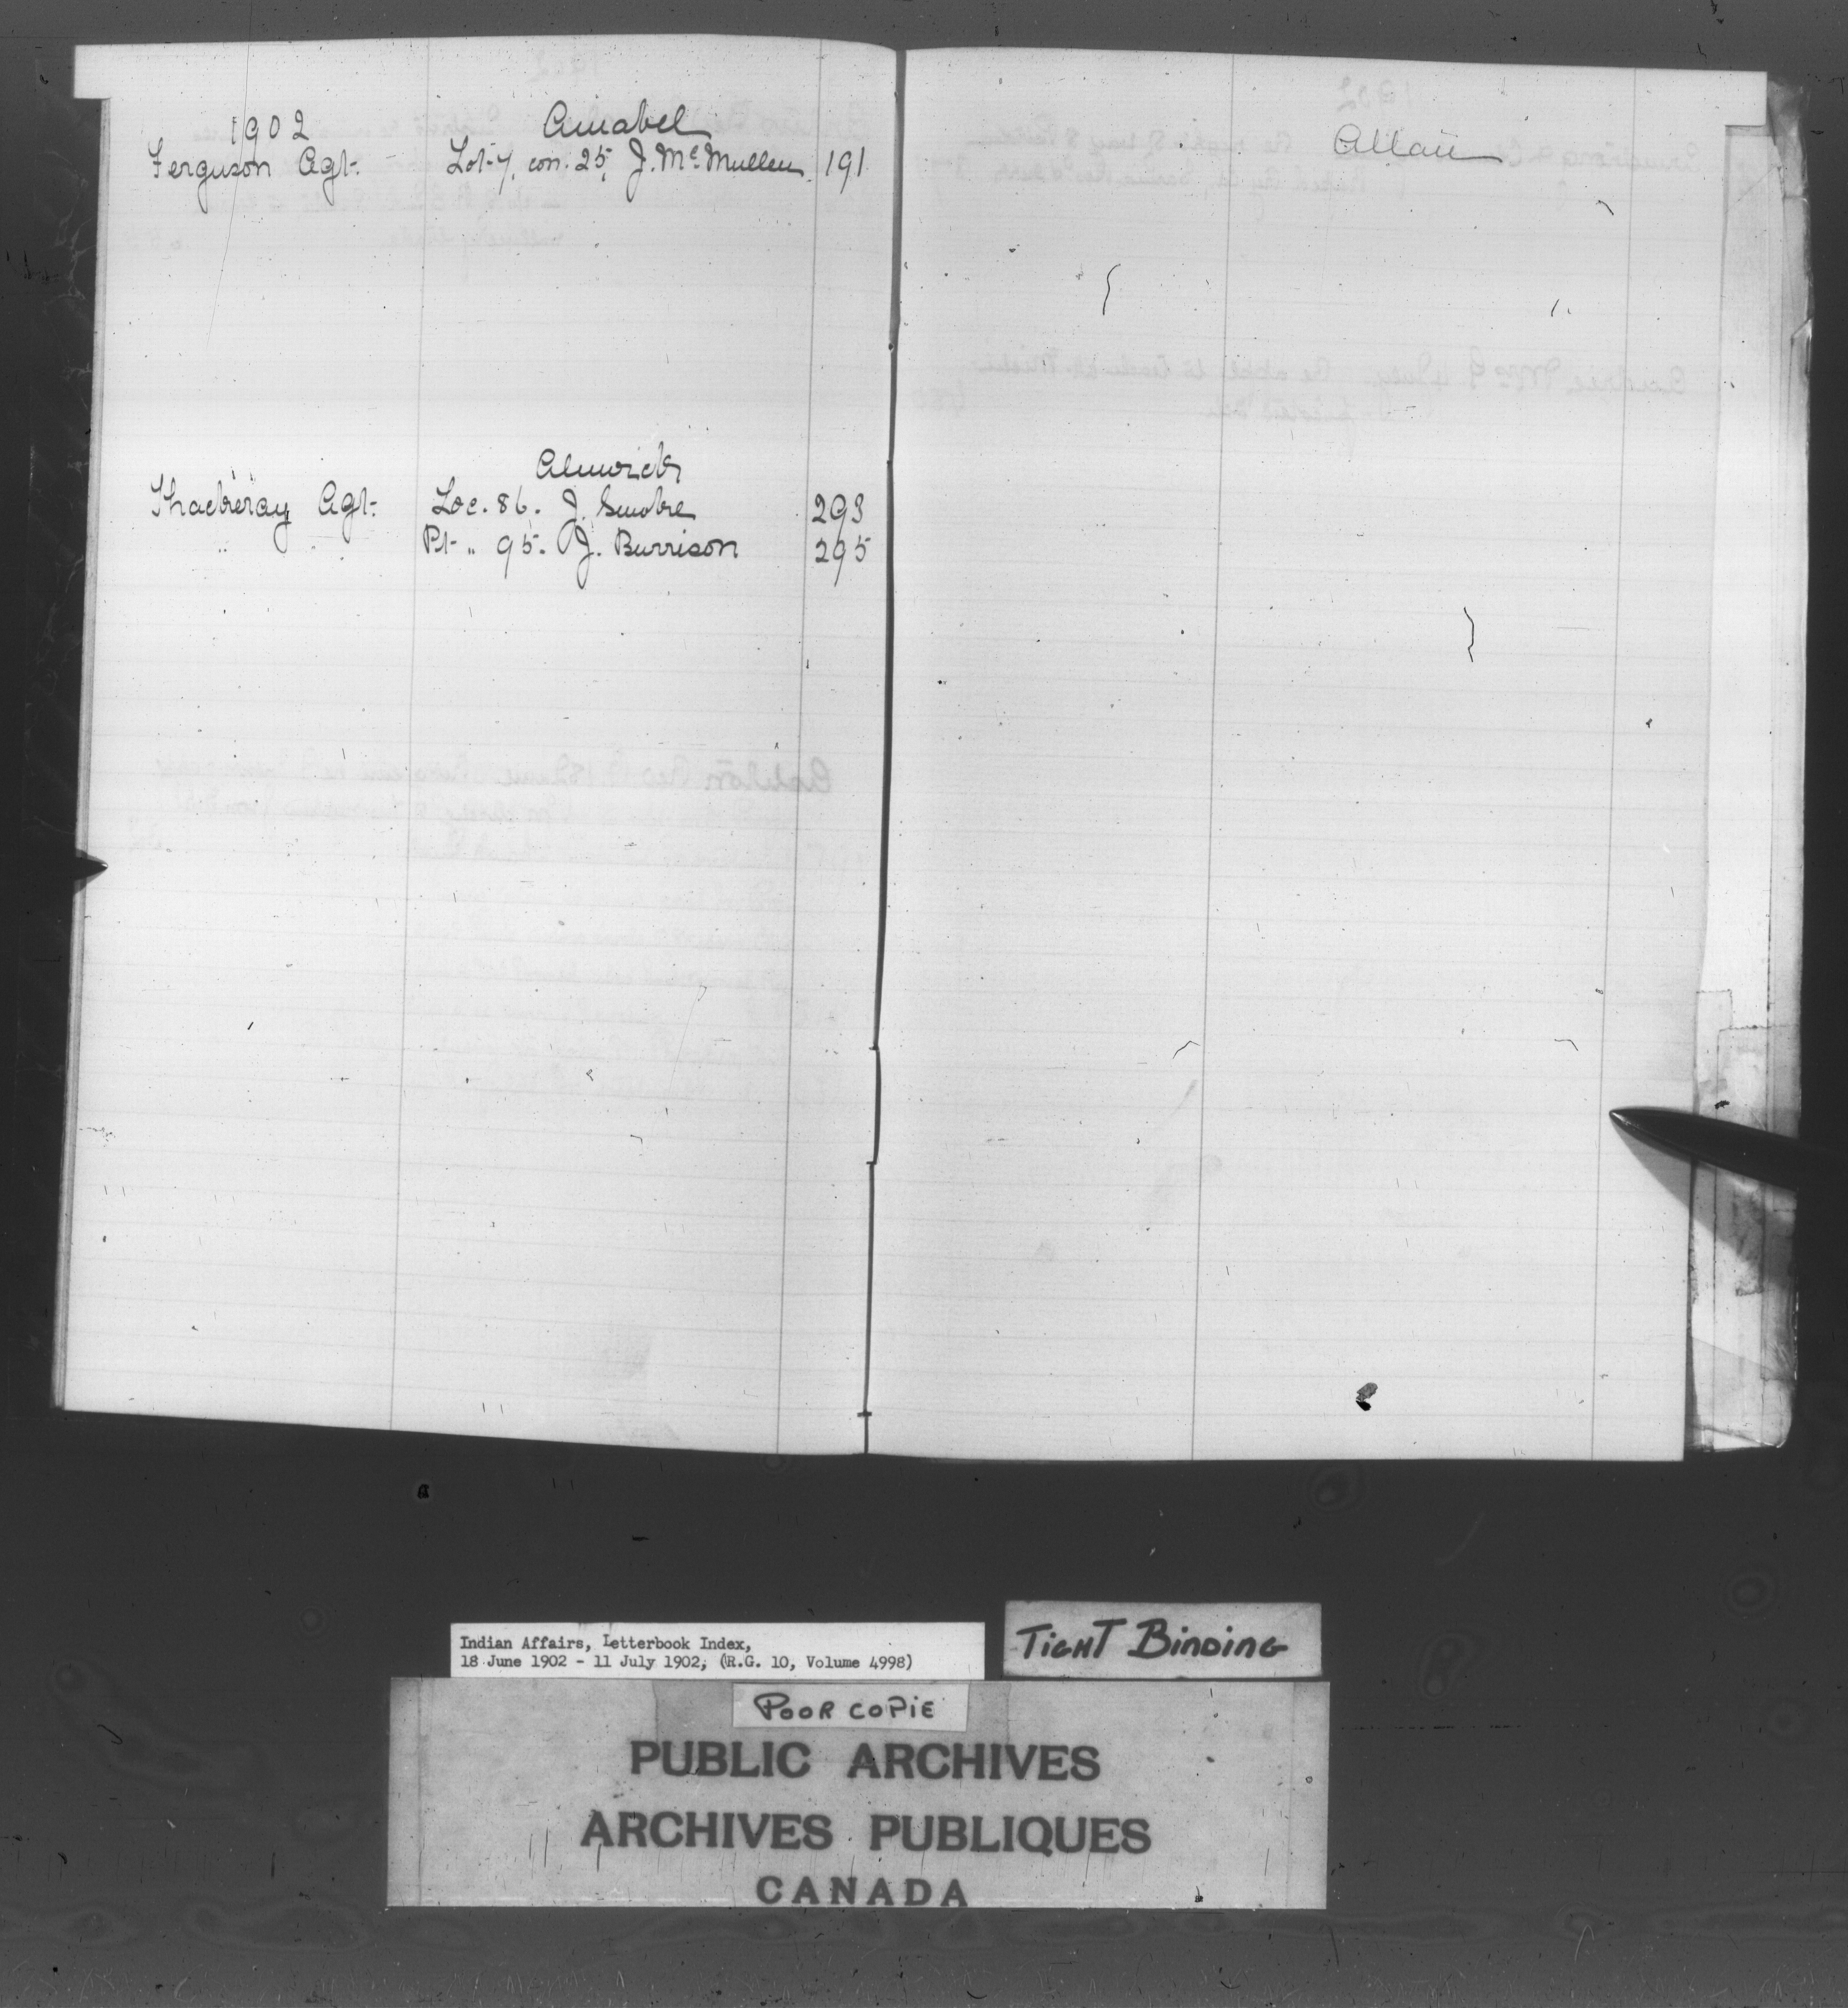 1902
Amabel
Ferguson Agt. Lot 7, con. 25, J. McMullen 191
Alnwick
Thackeray Agt. Loc. 86. J. Smoke 293
" " Pt " 95. J. Burrison 295
Allan
Indian Affairs, Letterbook Index,
18 June 1902 - 11 July 1902, (R.G. 10, Volume 4998)
TIGHT BINDING
POOR COPIE
PUBLIC ARCHIVES
ARCHIVES PUBLIQUES
CANADA